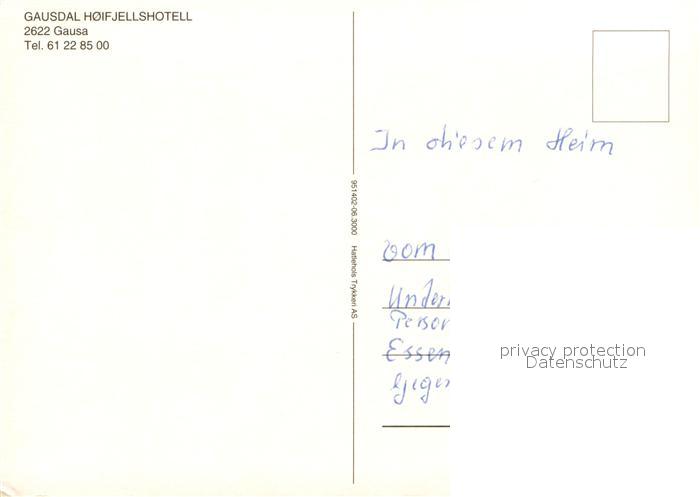 GAUSDAL HØIFJELLSHOTELL
2622 Gausa
Tel. 61 22 85 00
951402-06.3000 Hatlehols Trykkeri AS
In diesem Heim
vom
Undern
Person
Essen
Gegen
privacy protection
Datenschutz